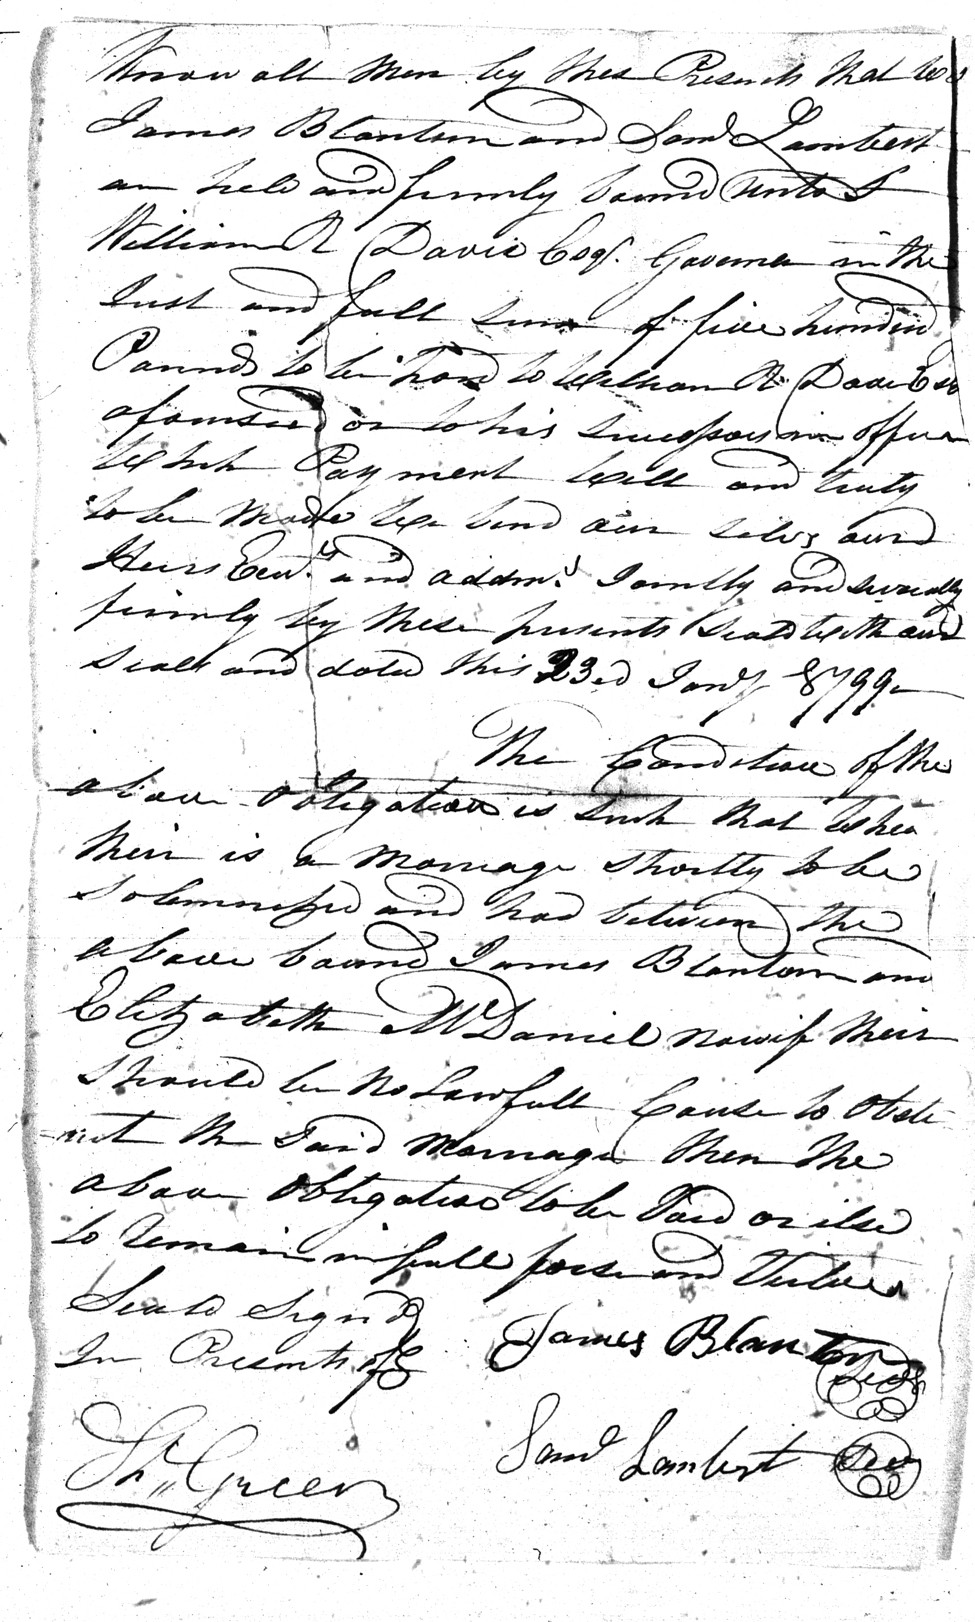 Know all Men by thes Presents that we
James Blanton and Saml Lambert
are held and firmly bound unto
William R Davie Esqr. Governer in the
Just and full sum of five hundred
Pounds to be paid to William R Davie Esq
aforesaid or to his successors in office
Which Payment well and truly
to be Made We bind our selves and
Heirs Exrs. and addmrs. Jointly and severally
firmly by these presents Seald with our
seals and dated this 23rd Jany 1799
The Condition of the
above obligation is such that whea
their is a Marriage shortly to be
solemnized and had between the
above bound James Blanton and
Elizabeth McDaniel now if their
should be No Lawfull Cause to obst
the said Marriage then the
above obligation to be Void or else
to remain in full forse and Virtue
Seald Signd
In Presents of
James Blanton Seal
Saml Lambert Seal
Th. Green